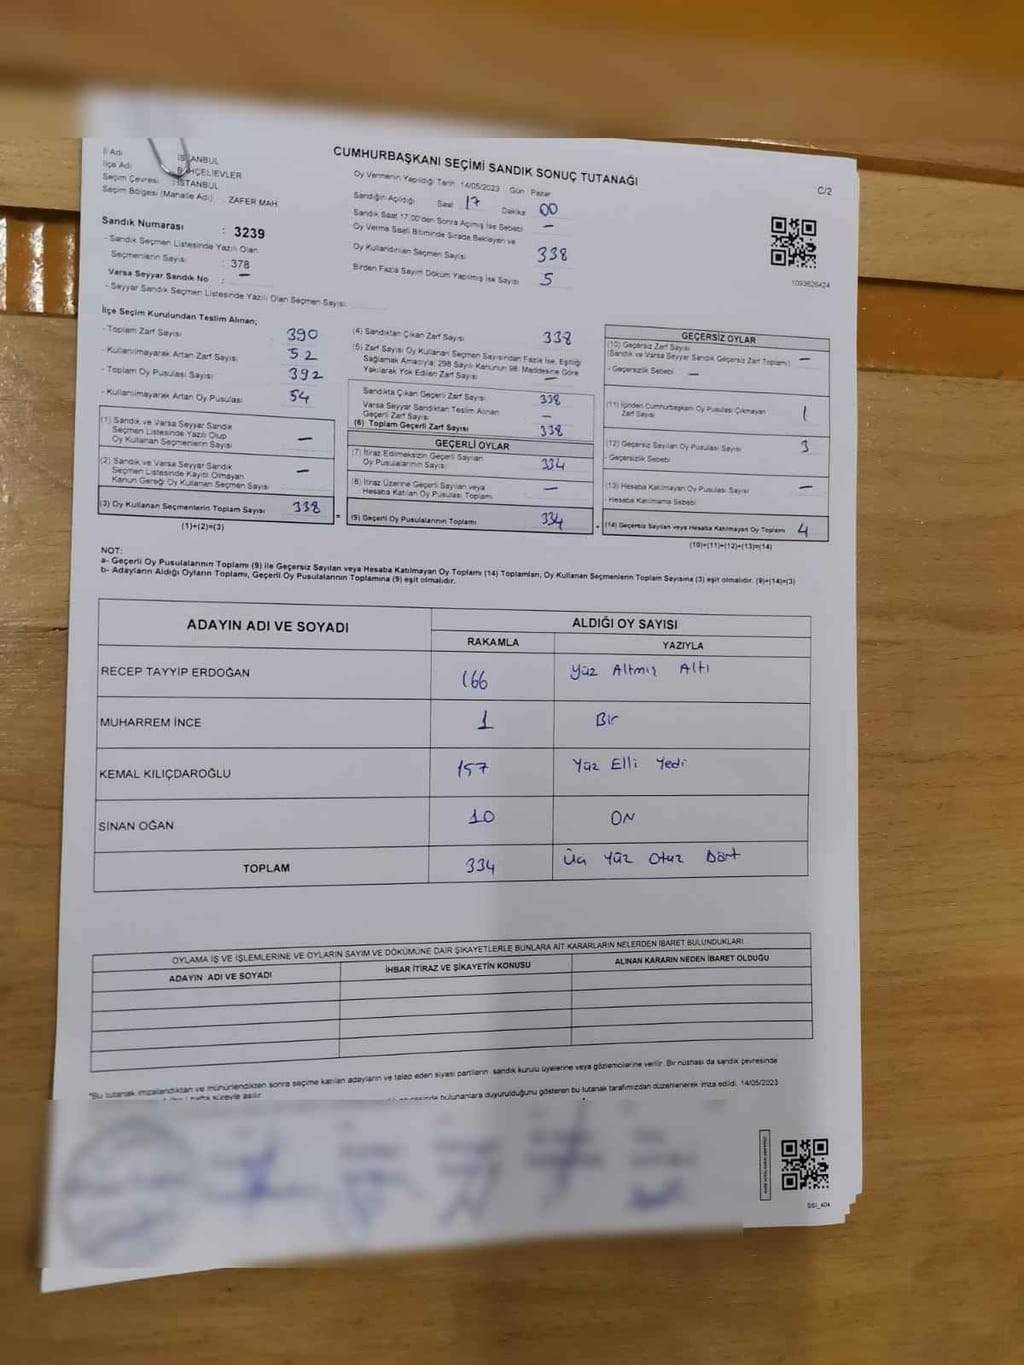 CUMHURBAŞKANI SEÇİMİ SANDIK SONUÇ TUTANAĞI
C/2
İl Adı İSTANBUL
İlçe Adı BAHÇELİEVLER
Seçim Çevresi : İSTANBUL
Seçim Bölgesi (Mahalle Adı) : ZAFER MAH
Oy Vermenin Yapıldığı Tarih: 14/05/2023 Gün Pazar
Sandığın Açıldığı Saat 17 Dakika 00
Sandık Saat 17.00'den Sonra Açılmış İse Sebebi —
Oy Verme Saati Bitiminde Sırada Bekleyen ve
Oy Kullandırılan Seçmen Sayısı 338
Birden Fazla Sayım Döküm Yapılmış İse Sayısı 5
1093626424
Sandık Numarası : 3239
- Sandık Seçmen Listesinde Yazılı Olan
Seçmenlerin Sayısı : 378
Varsa Seyyar Sandık No : —
- Seyyar Sandık Seçmen Listesinde Yazılı Olan Seçmen Sayısı:
İlçe Seçim Kurulundan Teslim Alınan;
- Toplam Zarf Sayısı 390
- Kullanılmayarak Artan Zarf Sayısı 52
- Toplam Oy Pusulası Sayısı 392
- Kullanılmayarak Artan Oy Pusulası 54
(1) Sandık ve Varsa Seyyar Sandık
Seçmen Listesinde Yazılı Olup
Oy Kullanan Seçmenlerin Sayısı —
(2) Sandık ve Varsa Seyyar Sandık
Seçmen Listesinde Kayıtlı Olmayan
Kanun Gereği Oy Kullanan Seçmen Sayısı —
(3) Oy Kullanan Seçmenlerin Toplam Sayısı 338
(1)+(2)=(3)
(4) Sandıktan Çıkan Zarf Sayısı 338
(5) Zarf Sayısı Oy Kullanan Seçmen Sayısından Fazla İse, Eşitliği
Sağlamak Amacıyla; 298 Sayılı Kanunun 98. Maddesine Göre
Yakılarak Yok Edilen Zarf Sayısı —
Sandıkta Çıkan Geçerli Zarf Sayısı 338
Varsa Seyyar Sandıktan Teslim Alınan
Geçerli Zarf Sayısı —
(6) Toplam Geçerli Zarf Sayısı 338
GEÇERLİ OYLAR
(7) İtiraz Edilmeksizin Geçerli Sayılan
Oy Pusulalarının Sayısı 334
(8) İtiraz Üzerine Geçerli Sayılan veya
Hesaba Katılan Oy Pusulası Toplamı —
(9) Geçerli Oy Pusulalarının Toplamı 334
GEÇERSİZ OYLAR
(10) Geçersiz Zarf Sayısı
(Sandık ve Varsa Seyyar Sandık Geçersiz Zarf Toplamı) —
- Geçersizlik Sebebi —
(11) İçinden Cumhurbaşkanı Oy Pusulası Çıkmayan
Zarf Sayısı 1
(12) Geçersiz Sayılan Oy Pusulası Sayısı 3
- Geçersizlik Sebebi
(13) Hesaba Katılmayan Oy Pusulası Sayısı —
- Hesaba Katılmama Sebebi
(14) Geçersiz Sayılan veya Hesaba Katılmayan Oy Toplamı 4
(10)+(11)+(12)+(13)=(14)
NOT:
a- Geçerli Oy Pusulalarının Toplamı (9) ile Geçersiz Sayılan veya Hesaba Katılmayan Oy Toplamı (14) Toplamları, Oy Kullanan Seçmenlerin Toplam Sayısına (3) eşit olmalıdır. (9)+(14)=(3)
b- Adayların Aldığı Oyların Toplamı, Geçerli Oy Pusulalarının Toplamına (9) eşit olmalıdır.
ADAYIN ADI VE SOYADI ALDIĞI OY SAYISI
RAKAMLA YAZIYLA
RECEP TAYYİP ERDOĞAN 166 Yüz Altmış Altı
MUHARREM İNCE 1 Bir
KEMAL KILIÇDAROĞLU 157 Yüz Elli Yedi
SİNAN OĞAN 10 ON
TOPLAM 334 Üç Yüz Otuz Dört
OYLAMA İŞ VE İŞLEMLERİNE VE OYLARIN SAYIM VE DÖKÜMÜNE DAİR ŞİKAYETLERLE BUNLARA AİT KARARLARIN NELERDEN İBARET BULUNDUKLARI
ADAYIN ADI VE SOYADI İHBAR İTİRAZ VE ŞİKAYETİN KONUSU ALINAN KARARIN NEDEN İBARET OLDUĞU
*Bu tutanak imzalandıktan ve mühürlendikten sonra seçime katılan adayların ve talep eden siyasi partilerin sandık kurulu üyelerine veya gözlemcilerine verilir. Bir nüshası da sandık çevresinde
bulunanlara duyurulduğunu gösteren bu tutanak tarafımızdan düzenlenerek imza edildi. 14/05/2023